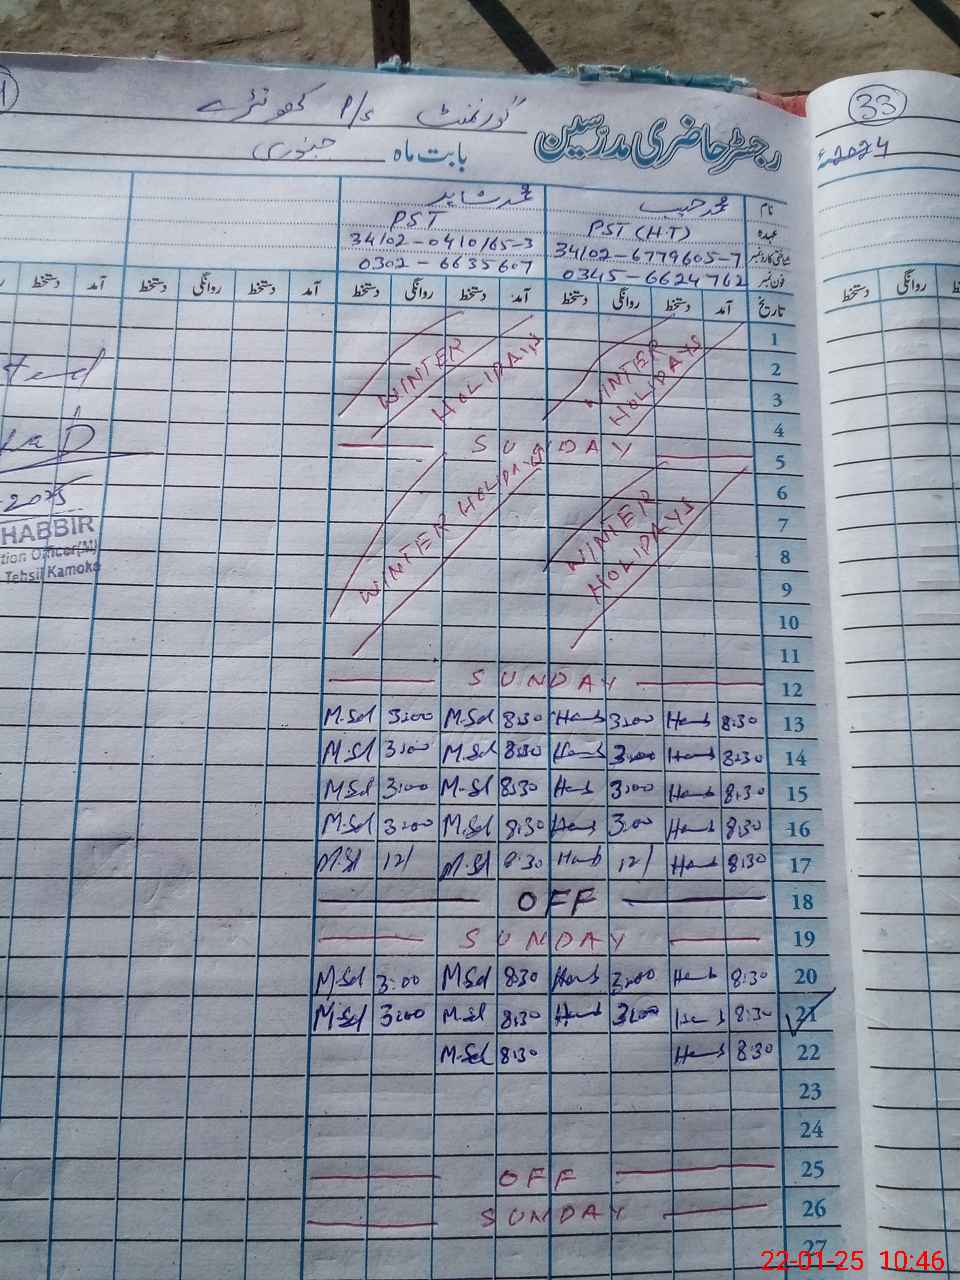 33
گورنمنٹ P/S
رجسٹر حاضری مدرسین
2024ء
بابت ماہ جنوری
نام محمد حبیب محمد شاہد
عہدہ PST (H.T) PST
34102-6779605-7 34102-0410165-3
فون نمبر 0345-6624762 0302-6635607
تاریخ آمد دستخط روانگی دستخط آمد دستخط روانگی دستخط آمد دستخط روانگی دستخط آمد دستخط
روانگی دستخط
1
2
3
4
WINTER HOLIDAYS WINTER HOLIDAYS
5 SUNDAY
6
7
8
9
10
11
WINTER HOLIDAYS WINTER HOLIDAYS
12 SUNDAY
M.Sd 3:00 M.Sd 8:30 Hab 3:00 Hab 8:30 13
M.Sd 3:00 M.Sd 8:30 Hab 3:00 Hab 8:30 14
M.Sd 3:00 M.Sd 8:30 Hab 3:00 Hab 8:30 15
M.Sd 3:00 M.Sd 8:30 Hab 3:00 Hab 8:30 16
M.Sd 12/ M.Sd 8:30 Hab 12/ Hab 8:30 17
OFF 18
SUNDAY 19
M.Sd 3:00 M.Sd 8:30 Hab 3:00 Hab 8:30 20
M.Sd 3:00 M.Sd 8:30 Hab 3:00 Hab 8:30 21
M.Sd 8:30 Hab 8:30 22
23
24
OFF 25
SUNDAY 26
27
-2025
HABBIR
tion Officer(M)
Tehsil Kamoke
22-01-25 10:46